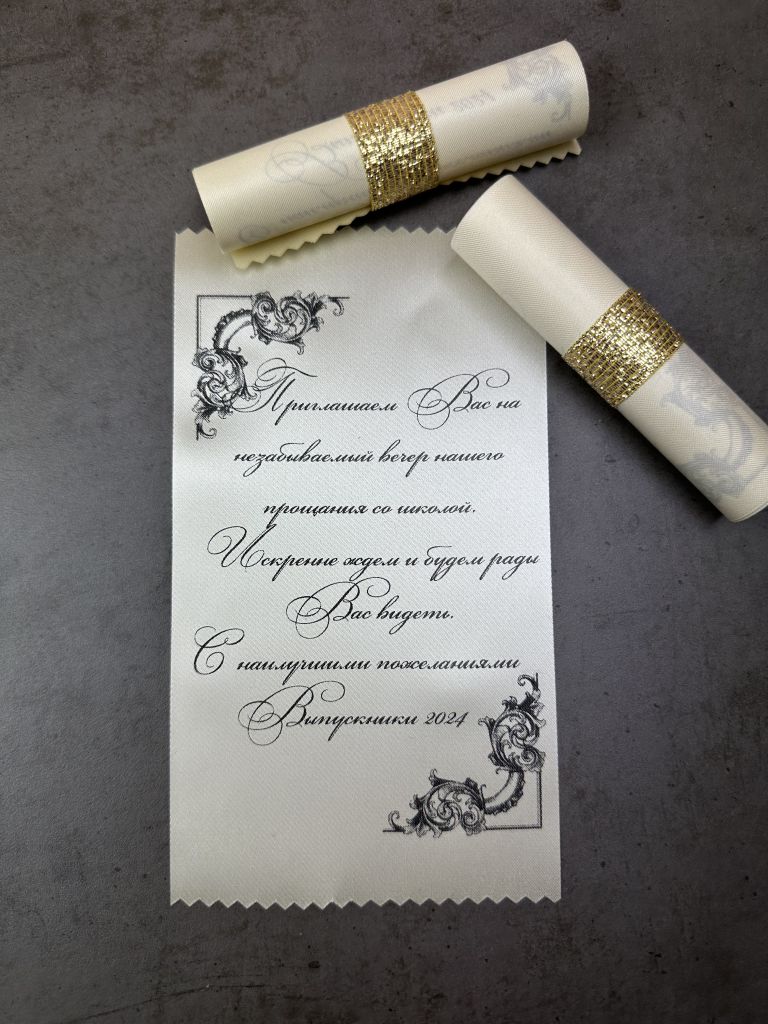 Приглашаем Вас на
незабываемый вечер нашего
прощания со школой.
Искренне ждем и будем рады
Вас видеть.
С наилучшими пожеланиями
Выпускники 2024